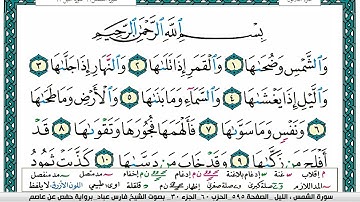 بِسْمِ اللَّهِ الرَّحْمَٰنِ الرَّحِيمِ
وَالشَّمْسِ وَضُحَاهَا ١ وَالْقَمَرِ إِذَا تَلَاهَا ٢ وَالنَّهَارِ إِذَا جَلَّاهَا ٣
وَاللَّيْلِ إِذَا يَغْشَاهَا ٤ وَالسَّمَاءِ وَمَا بَنَاهَا ٥ وَالْأَرْضِ وَمَا طَحَاهَا
٦ وَنَفْسٍ وَمَا سَوَّاهَا ٧ فَأَلْهَمَهَا فُجُورَهَا وَتَقْوَاهَا ٨ قَدْ
أَفْلَحَ مَن زَكَّاهَا ٩ وَقَدْ خَابَ مَن دَسَّاهَا ١٠ كَذَّبَتْ ثَمُودُ
سورة الشمس، الليل . الصفحة ٥٩٥ الحزب ٦٠ . الجزء ٣٠ . بصوت الشيخ فارس عباد . برواية حفص عن عاصم